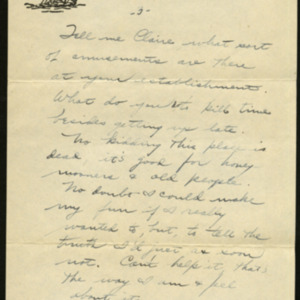 -3-
Tell me Claire what sort
of amusements are there
at your establishment.
What do you do to kill time
besides getting up late.
No kidding this place is
dead, it's good for honey
mooners & old people.
No doubt I could make
my fun if I really
wanted to, but, to tell the
truth I'd just as soon
not. Can't help it, that's
the way I am & feel
about it